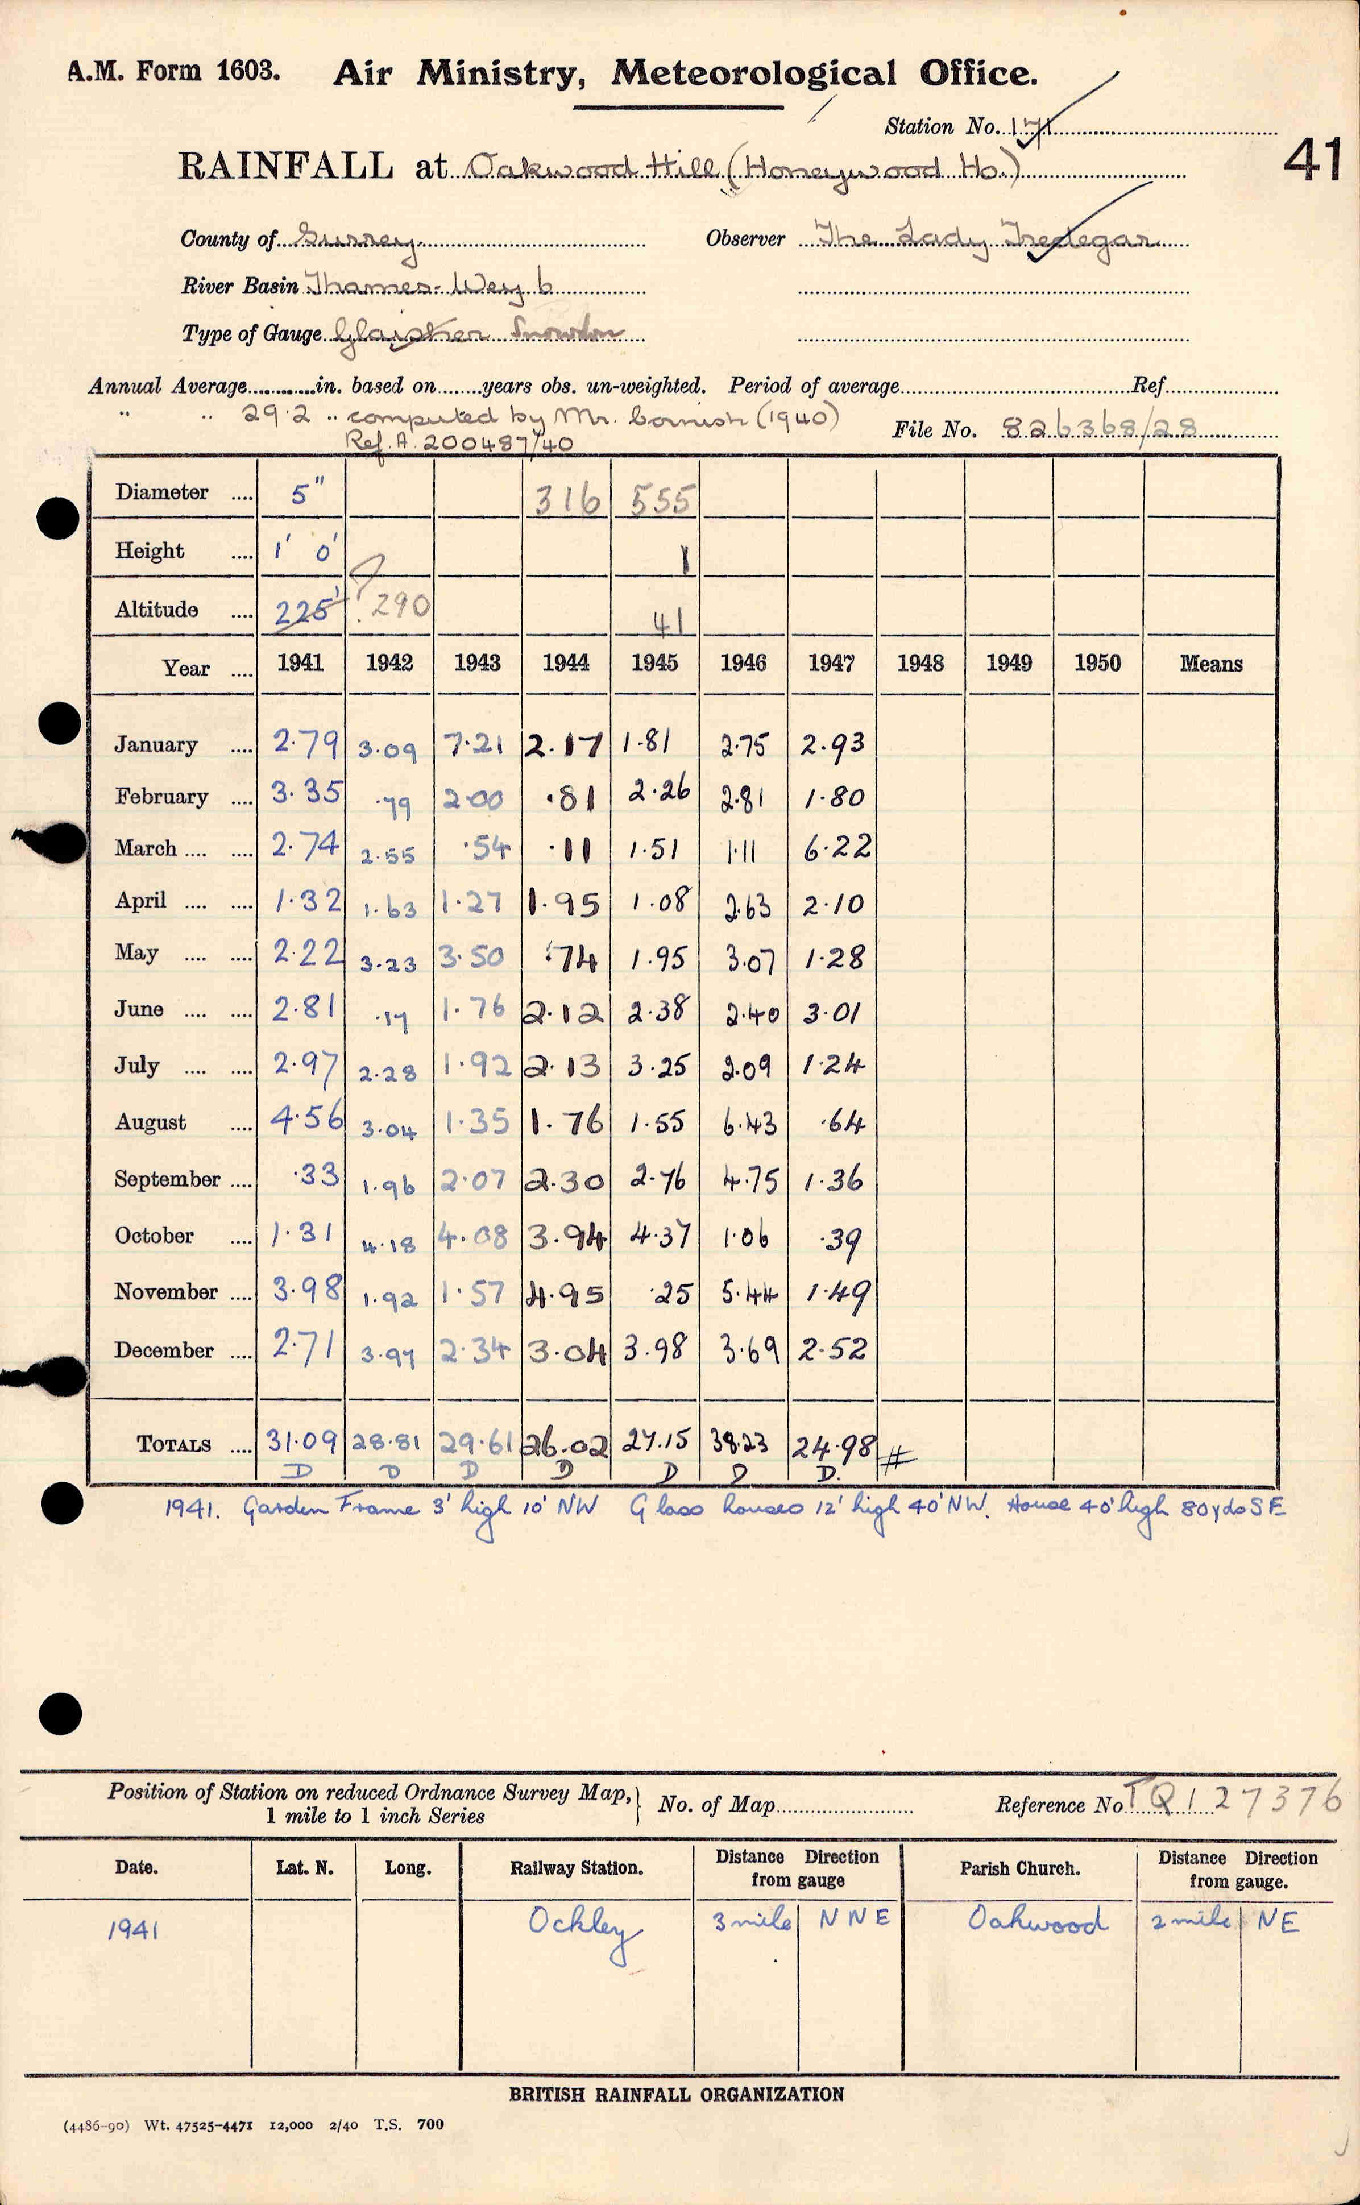 A.M. Form 1603. Air Ministry, Meteorological Office.
Station No. 171
41
RAINFALL at Oakwood Hill (Honeywood Ho.)
County of Surrey. Observer The Lady Tredegar
River Basin Thames-Wey b
Type of Gauge Glaisher Snowdon
Annual Average............in. based on.......years obs. un-weighted. Period of average.......... Ref..........
" " 29.2 " computed by Mr. Cornish (1940)
File No. 826368/28
Ref. A. 200487/40
Diameter .... 5" 316 555
Height .... 1' 0' 1
Altitude .... 225' ? 290 41
Year .... 1941 1942 1943 1944 1945 1946 1947 1948 1949 1950 Means
January .... 2.79 3.09 7.21 2.17 1.81 2.75 2.93
February .... 3.35 .79 2.00 .81 2.26 2.81 1.80
March .... .... 2.74 2.55 .54 .11 1.51 1.11 6.22
April .... .... 1.32 1.63 1.27 1.95 1.08 2.63 2.10
May .... .... 2.22 3.23 3.50 .74 1.95 3.07 1.28
June .... .... 2.81 .17 1.76 2.12 2.38 2.40 3.01
July .... .... 2.97 2.28 1.92 2.13 3.25 2.09 1.24
August .... 4.56 3.04 1.35 1.76 1.55 6.43 .64
September .... .33 1.96 2.07 2.30 2.76 4.75 1.36
October .... 1.31 4.18 4.08 3.94 4.37 1.06 .39
November .... 3.98 1.92 1.57 4.95 .25 5.44 1.49
December .... 2.71 3.97 2.34 3.04 3.98 3.69 2.52
TOTALS .... 31.09 28.81 29.61 26.02 27.15 38.23 24.98 #
D D D D D D D.
1941. Garden Frame 3' high 10' NW Glass houses 12' high 40' NW. House 40' high 80yds SE
Position of Station on reduced Ordnance Survey Map, 1 mile to 1 inch Series } No. of Map.......... Reference No TQ 127376
Date. Lat. N. Long. Railway Station. Distance Direction from gauge Parish Church. Distance Direction from gauge.
1941 Ockley 3 mile NNE Oakwood 2 mile NE
BRITISH RAINFALL ORGANIZATION
(4486-90) Wt. 47525-4471 12,000 2/40 T.S. 700